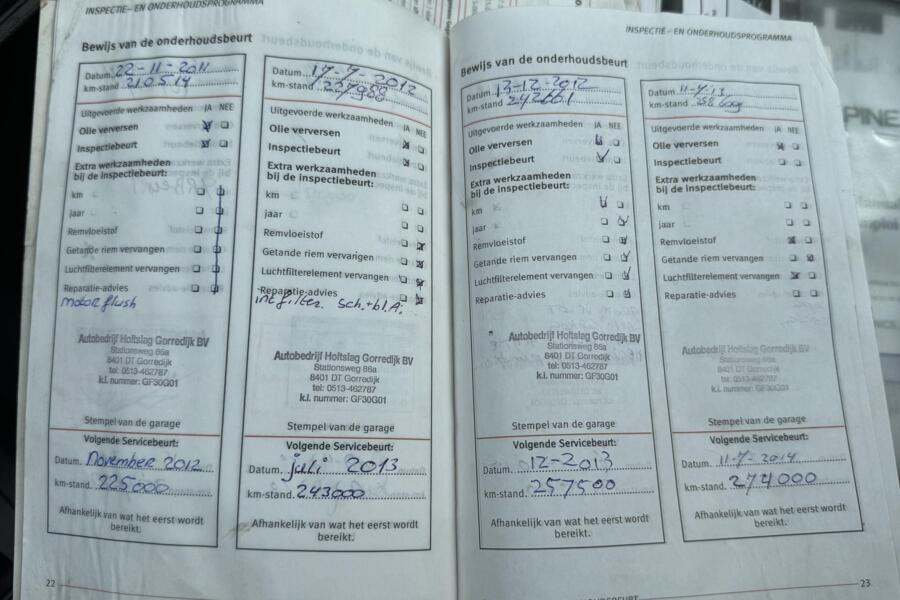 INSPECTIE- EN ONDERHOUDSPROGRAMMA
Bewijs van de onderhoudsbeurt
Datum 22-11-2011
km-stand 210514
Uitgevoerde werkzaamheden JA NEE
Olie verversen
Inspectiebeurt
Extra werkzaamheden
bij de inspectiebeurt:
km
jaar
Remvloeistof
Getande riem vervangen
Luchtfilterelement vervangen
Reparatie-advies
motorflush
Autobedrijf Holtslag Gorredijk BV
Stationsweg 86a
8401 DT Gorredijk
tel: 0513-462787
k.l. nummer: GF30G01
Stempel van de garage
Volgende Servicebeurt:
Datum. November 2012
km-stand. 225000
Afhankelijk van wat het eerst wordt
bereikt.
Datum 17-7-2012
km-stand 227988
Uitgevoerde werkzaamheden JA NEE
Olie verversen
Inspectiebeurt
Extra werkzaamheden
bij de inspectiebeurt:
km
jaar
Remvloeistof
Getande riem vervangen
Luchtfilterelement vervangen
Reparatie-advies
int filter. Sch.+bl.A.
Autobedrijf Holtslag Gorredijk BV
Stationsweg 86a
8401 DT Gorredijk
tel: 0513-462787
k.l. nummer: GF30G01
Stempel van de garage
Volgende Servicebeurt:
Datum. juli 2013
km-stand. 243000
Afhankelijk van wat het eerst wordt
bereikt.
22
INSPECTIE- EN ONDERHOUDSPROGRAMMA
Bewijs van de onderhoudsbeurt
Datum 13-12-2012
km-stand 242661
Uitgevoerde werkzaamheden JA NEE
Olie verversen
Inspectiebeurt
Extra werkzaamheden
bij de inspectiebeurt:
km
jaar
Remvloeistof
Getande riem vervangen
Luchtfilterelement vervangen
Reparatie-advies
Autobedrijf Holtslag Gorredijk BV
Stationsweg 86a
8401 DT Gorredijk
tel: 0513-462787
k.l. nummer: GF30G01
Stempel van de garage
Volgende Servicebeurt:
Datum. 12-2013
km-stand. 257500
Afhankelijk van wat het eerst wordt
bereikt.
Datum 11-7-13
km-stand
Uitgevoerde werkzaamheden JA NEE
Olie verversen
Inspectiebeurt
Extra werkzaamheden
bij de inspectiebeurt:
km
jaar
Remvloeistof
Getande riem vervangen
Luchtfilterelement vervangen
Reparatie-advies
Autobedrijf Holtslag Gorredijk BV
Stationsweg 86a
8401 DT Gorredijk
tel: 0513-462787
k.l. nummer: GF30G01
Stempel van de garage
Volgende Servicebeurt:
Datum. 11-7-2014
km-stand. 274000
Afhankelijk van wat het eerst wordt
bereikt.
23
PINE